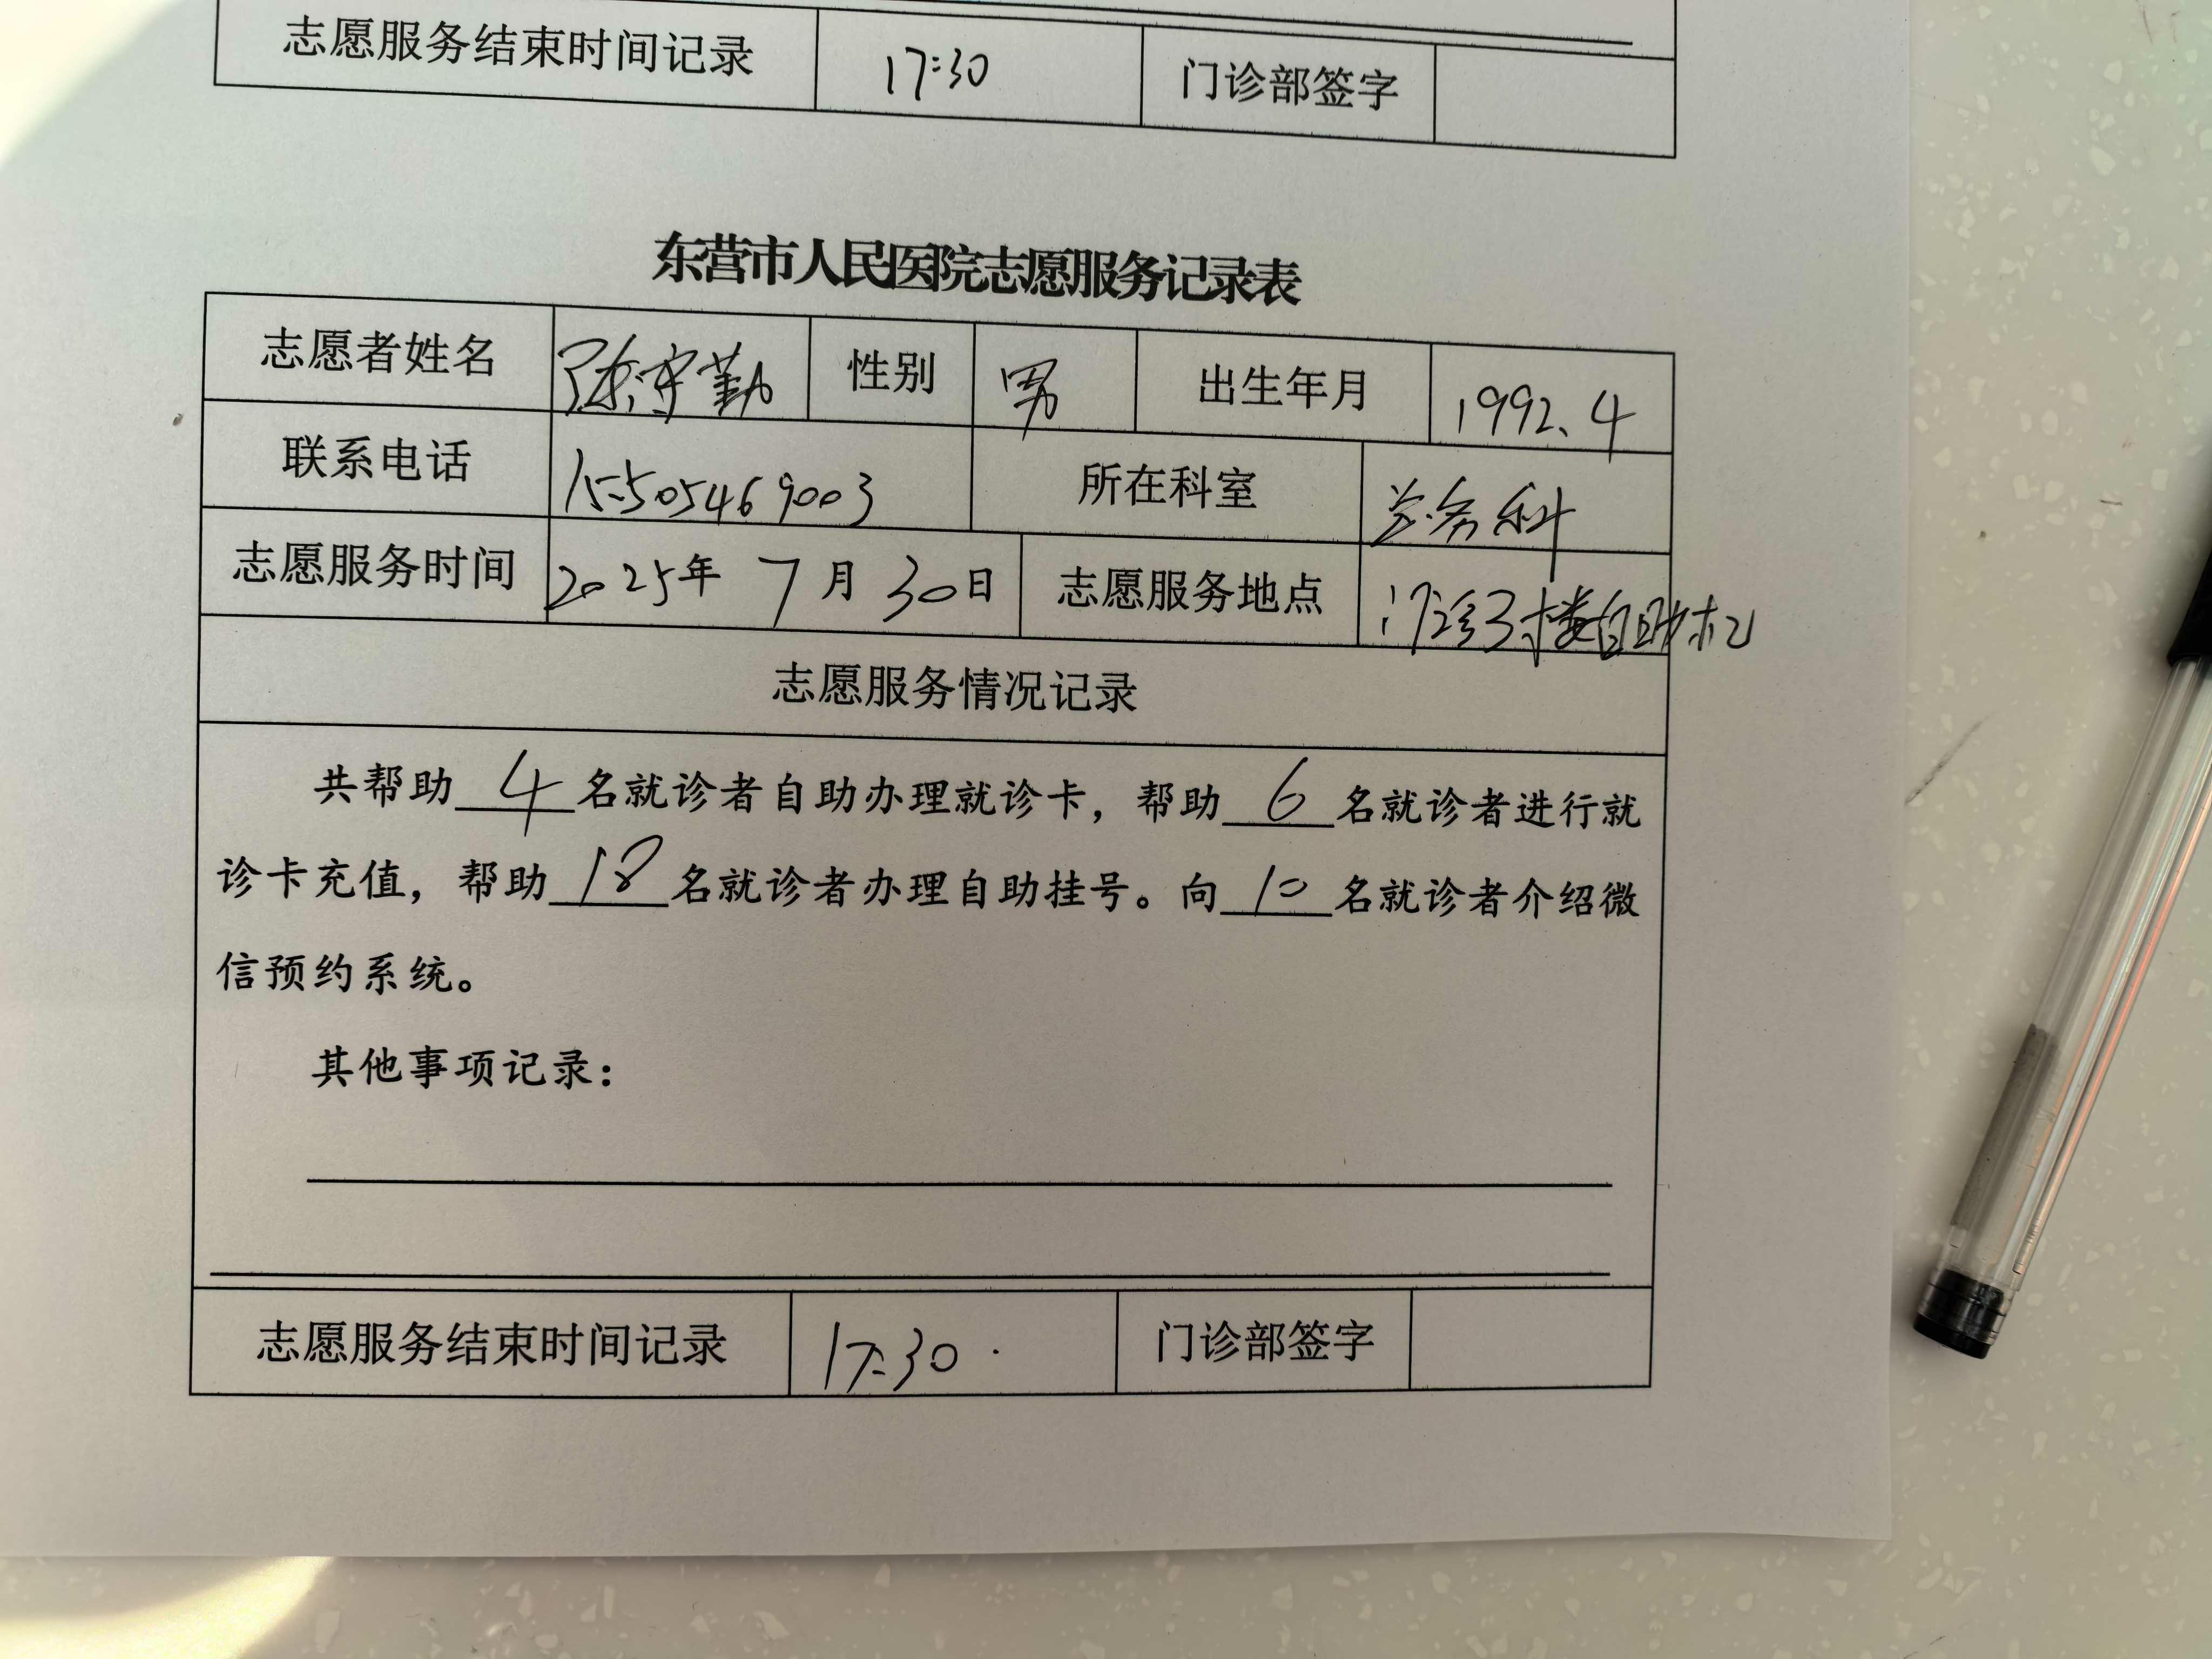 志愿服务结束时间记录 17:30 门诊部签字
东营市人民医院志愿服务记录表
志愿者姓名 张守勤 性别 男 出生年月 1992.4
联系电话 15505469003 所在科室 总务科
志愿服务时间 2025年 7月30日 志愿服务地点 门诊3楼自助机
志愿服务情况记录
共帮助4名就诊者自助办理就诊卡，帮助6名就诊者进行就
诊卡充值，帮助18名就诊者办理自助挂号。向10名就诊者介绍微
信预约系统。
其他事项记录：
志愿服务结束时间记录 17:30 门诊部签字